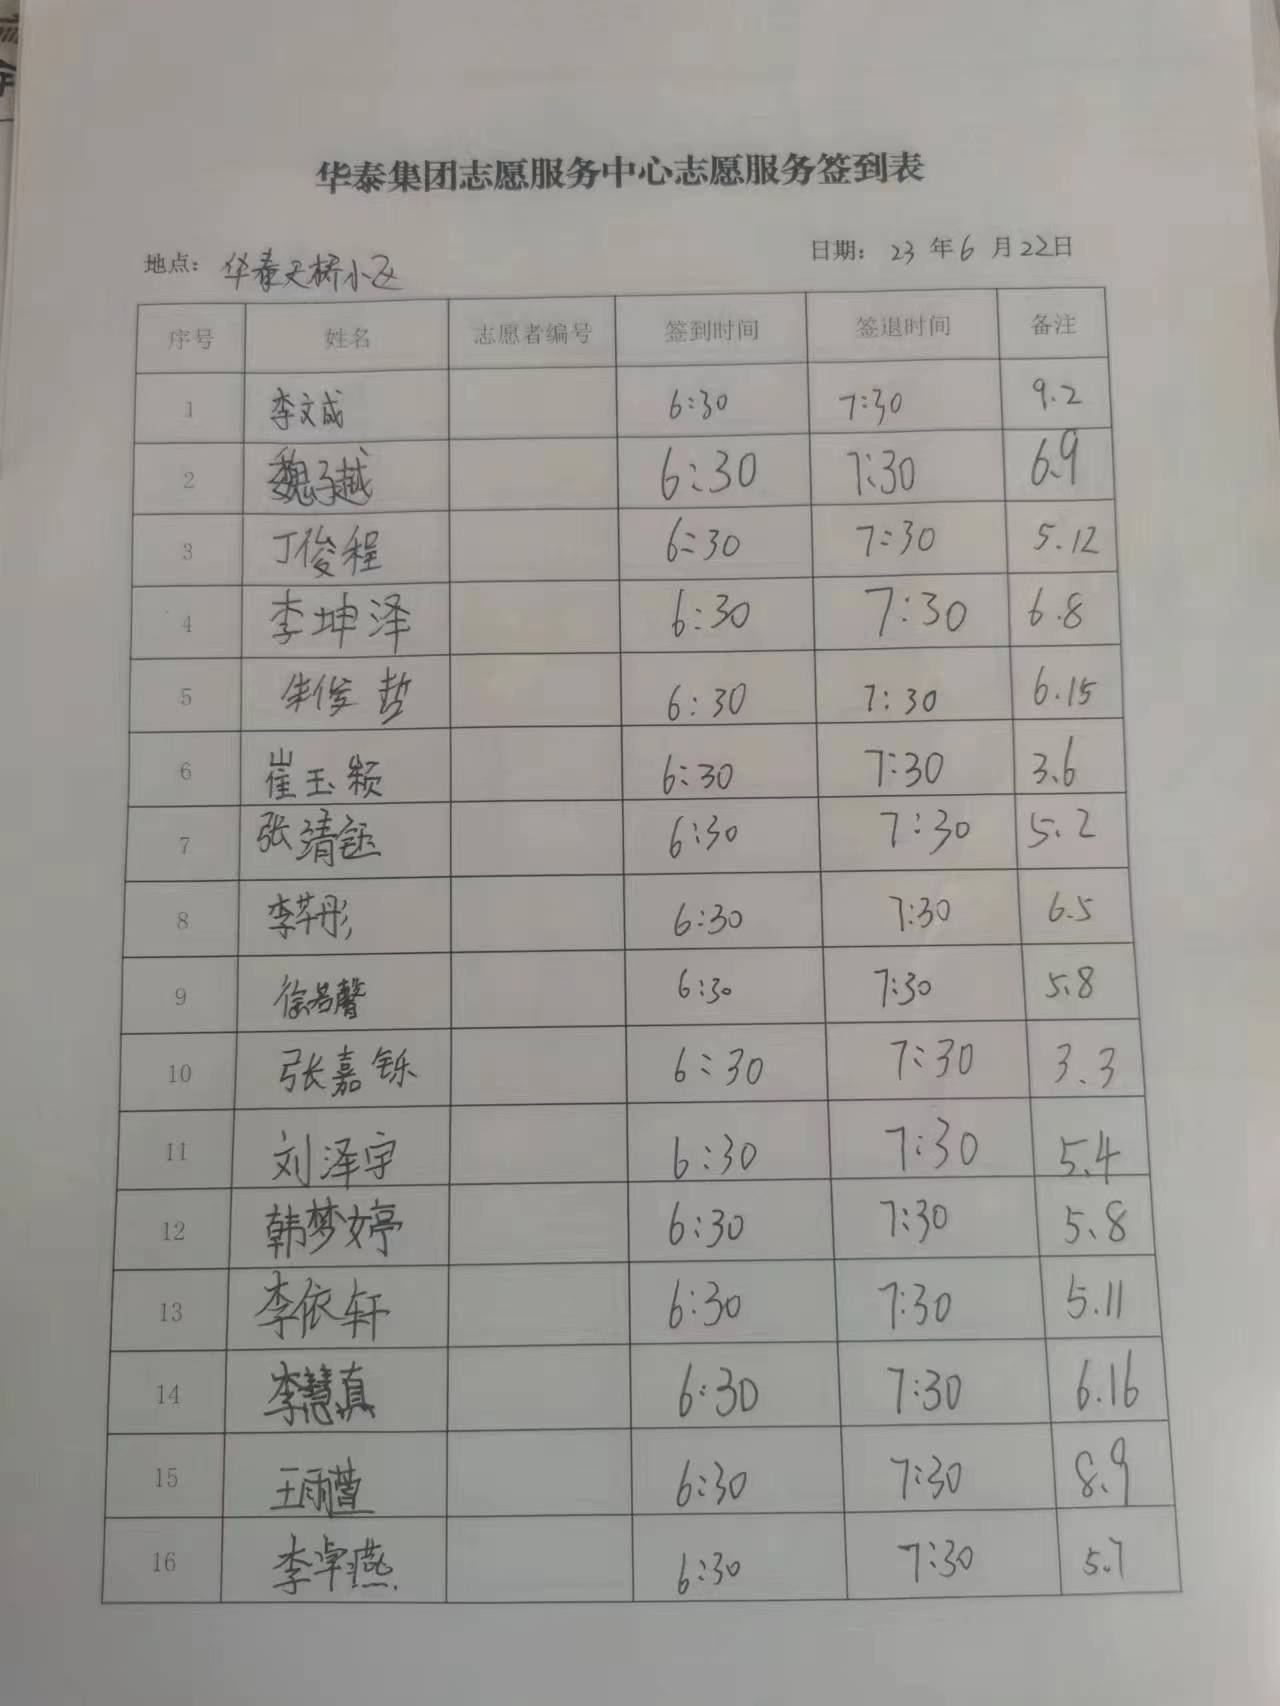 华泰集团志愿服务中心志愿服务签到表
地点：华泰天桥小区 日期：23 年 6 月 22日
序号 姓名 志愿者编号 签到时间 签退时间 备注
1 李文成 6:30 7:30 9.2
2 魏子越 6:30 7:30 6.9
3 丁俊程 6:30 7:30 5.12
4 李坤泽 6:30 7:30 6.8
5 朱俊哲 6:30 7:30 6.15
6 崔玉颖 6:30 7:30 3.6
7 张靖钰 6:30 7:30 5.2
8 李芊彤 6:30 7:30 6.5
9 徐若馨 6:30 7:30 5.8
10 张嘉铄 6:30 7:30 3.3
11 刘泽宇 6:30 7:30 5.4
12 韩梦婷 6:30 7:30 5.8
13 李依轩 6:30 7:30 5.11
14 李慧真 6:30 7:30 6.16
15 王雨萱 6:30 7:30 8.9
16 李卓燕 6:30 7:30 5.7